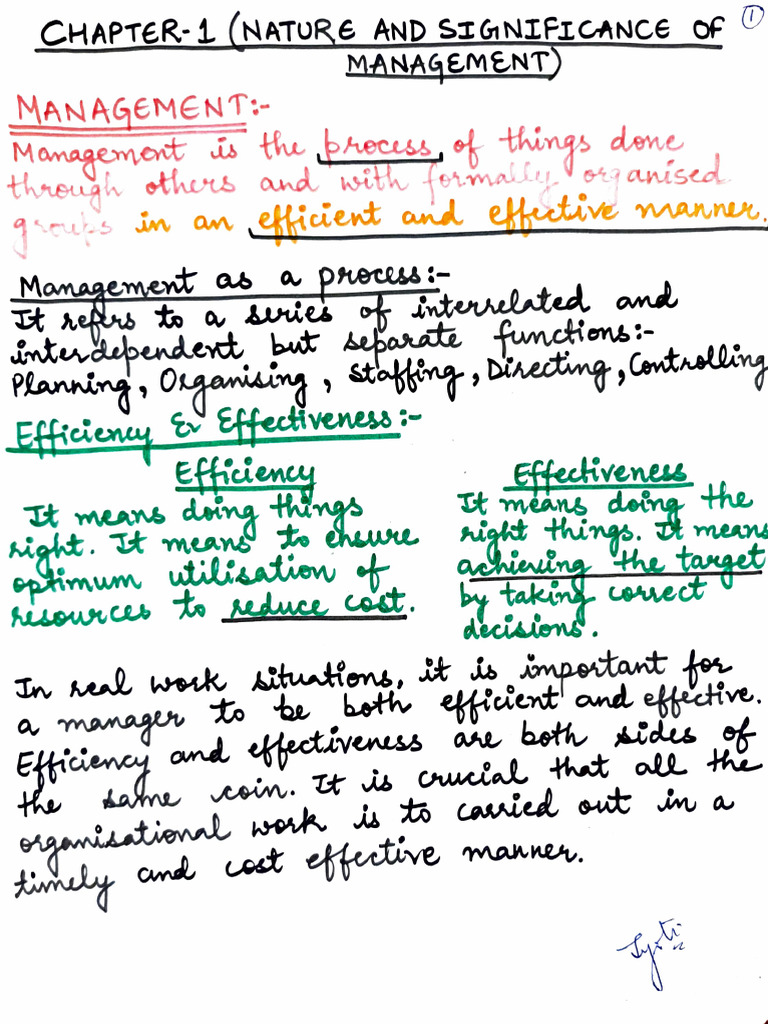 CHAPTER-1 (NATURE AND SIGNIFICANCE OF
1
MANAGEMENT)
MANAGEMENT:-
Management is the process of things done
through others and with formally organised
groups in an efficient and effective manner.
Management as a process:-
It refers to a series of interrelated and
interdependent but separate functions:-
Planning, Organising, Staffing, Directing, Controlling
Efficiency & Effectiveness:-
Efficiency
It means doing things
right. It means to ensure
optimum utilisation of
resources to reduce cost.
Effectiveness
It means doing the
right things. It means
achieving the target
by taking correct
decisions.
In real work situations, it is important for
a manager to be both efficient and effective.
Efficiency and effectiveness are both sides of
the same coin. It is crucial that all the
organisational work is to carried out in a
timely and cost effective manner.
Jyoti